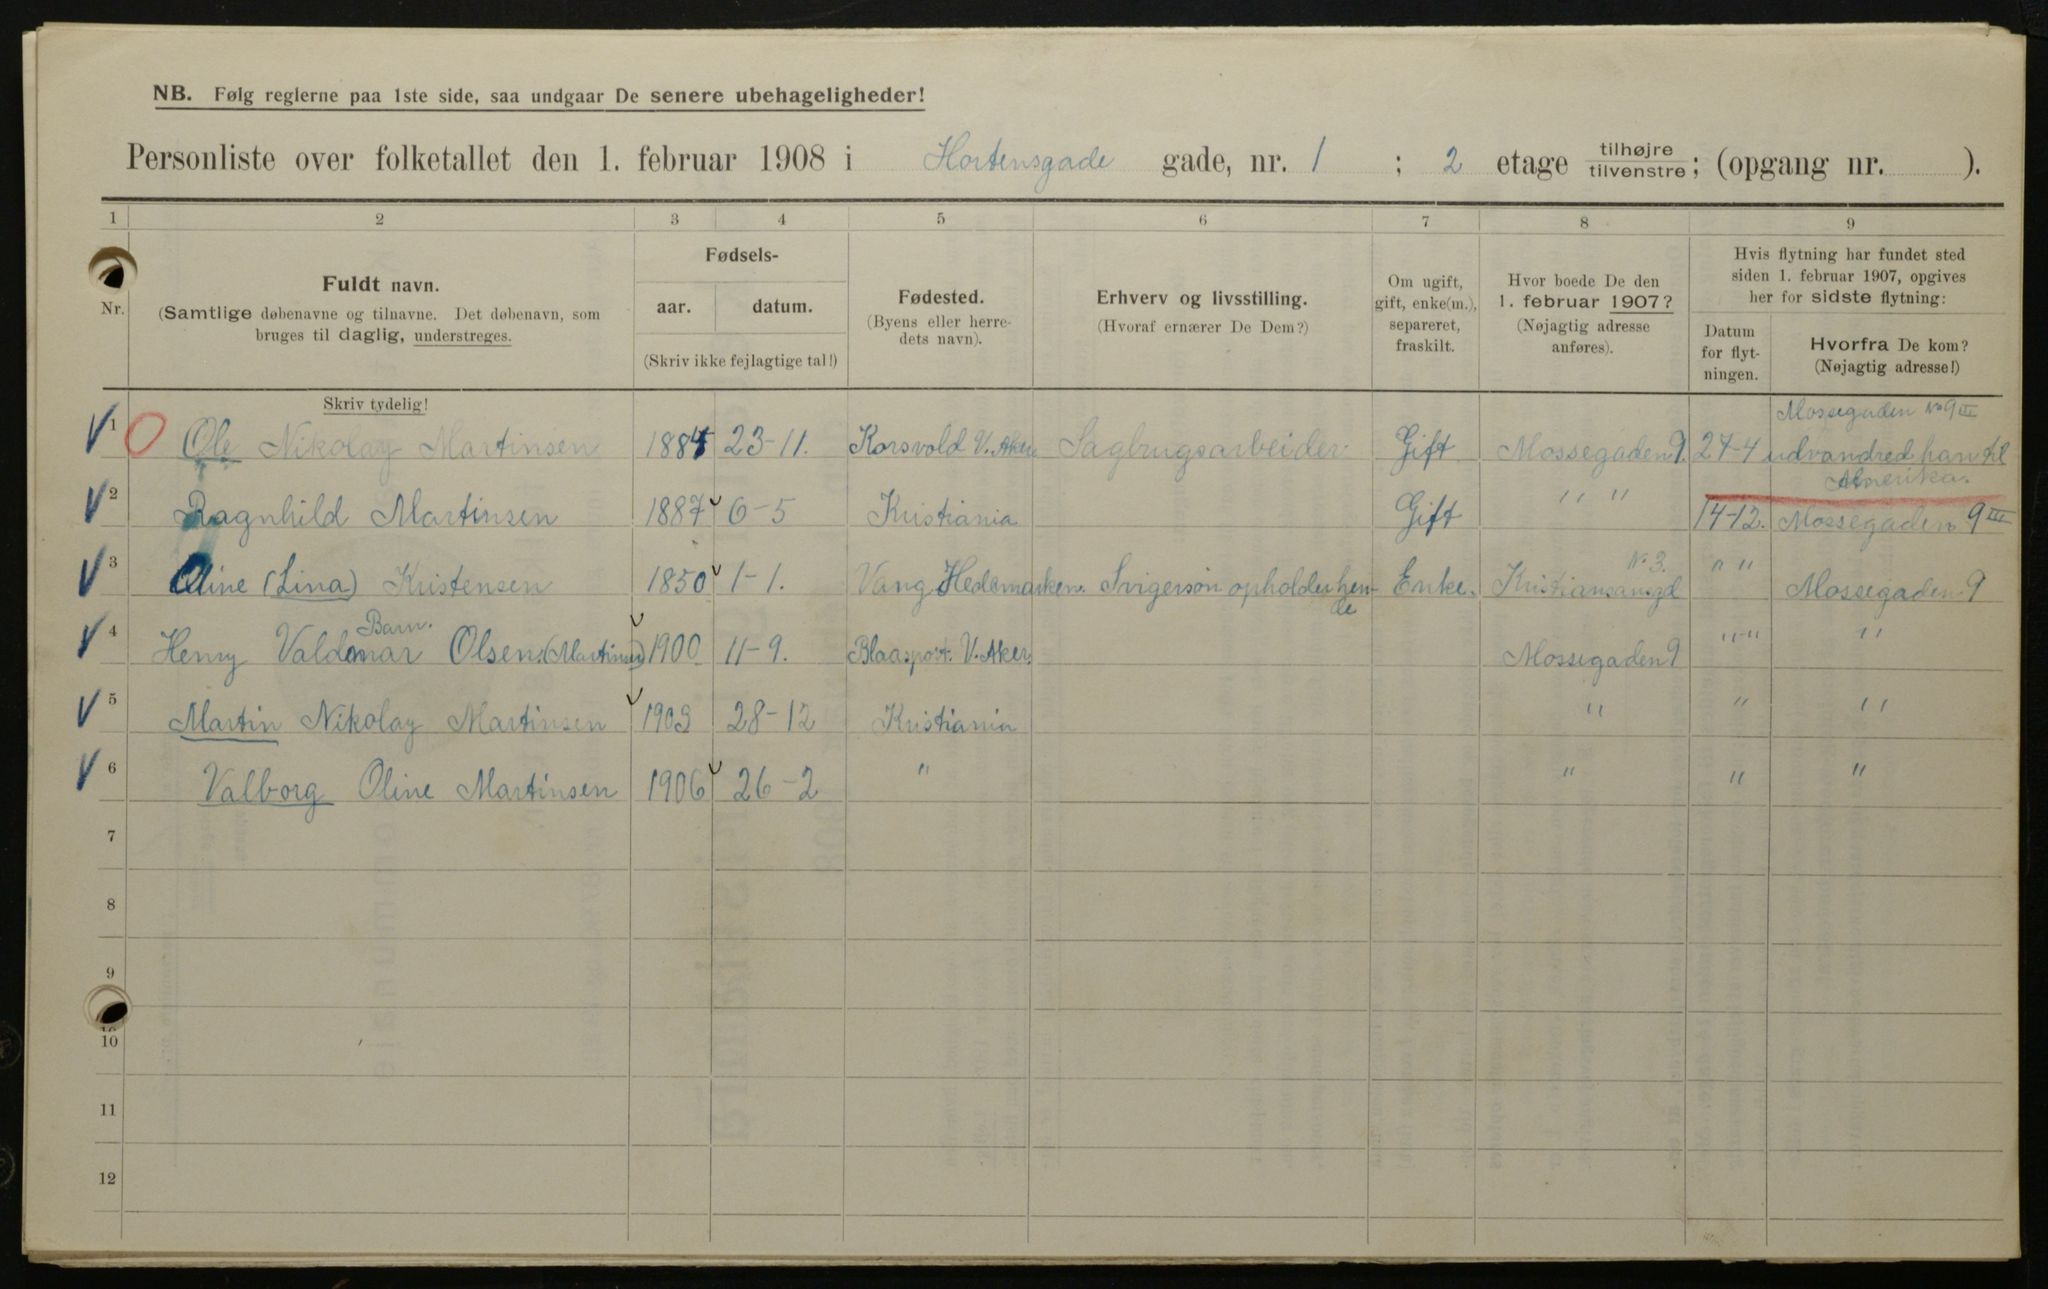 NB. Følg reglerne paa 1ste side, saa undgaar De senere ubehageligheder!
Personliste over folketallet den 1. februar 1908 i Hortensgade gade, nr. 1 ; 2 etage tilhøjre / tilvenstre ; (opgang nr. ).
1 2 3 4 5 6 7 8 9
Nr.
Fuldt navn.
(Samtlige døbenavne og tilnavne. Det døbenavn, som
bruges til daglig, understreges.
Fødsels-
aar. datum.
(Skriv ikke fejlagtige tal!)
Fødested.
(Byens eller herre-
dets navn).
Erhverv og livsstilling.
(Hvoraf ernærer De Dem?)
Om ugift,
gift, enke(m.),
separeret,
fraskilt.
Hvor boede De den
1. februar 1907?
(Nøjagtig adresse
anføres).
Hvis flytning har fundet sted
siden 1. februar 1907, opgives
her for sidste flytning:
Datum
for flyt-
ningen.
Hvorfra De kom?
(Nøjagtig adresse!)
Skriv tydelig!
Mossegaden No 9 III
1 Ole Nikolay Martinsen 1884 23-11. Korsvold V. Aker Sagbrugsarbeider Gift Mossegaden 9. 27-4 udvandred han til
Amerika.
2 Ragnhild Martinsen 1887 6-5 Kristiania Gift " " 14-12. Mossegaden 9 III
3 Oline (Lina) Kristensen 1850 1-1. Vang Hedemarken. Svigersøn opholder hen-
de Enke. Kristiansansgd No 3. " " Mossegaden 9
Barn.
4 Henry Valdemar Olsen (Martinsen) 1900 11-9. Blaaspost. V. Aker. Mossegaden 9 " " "
5 Martin Nikolay Martinsen 1903 28-12 Kristiania " " "
6 Valborg Oline Martinsen 1906 26-2 " " " "
7
8
9
10
11
12